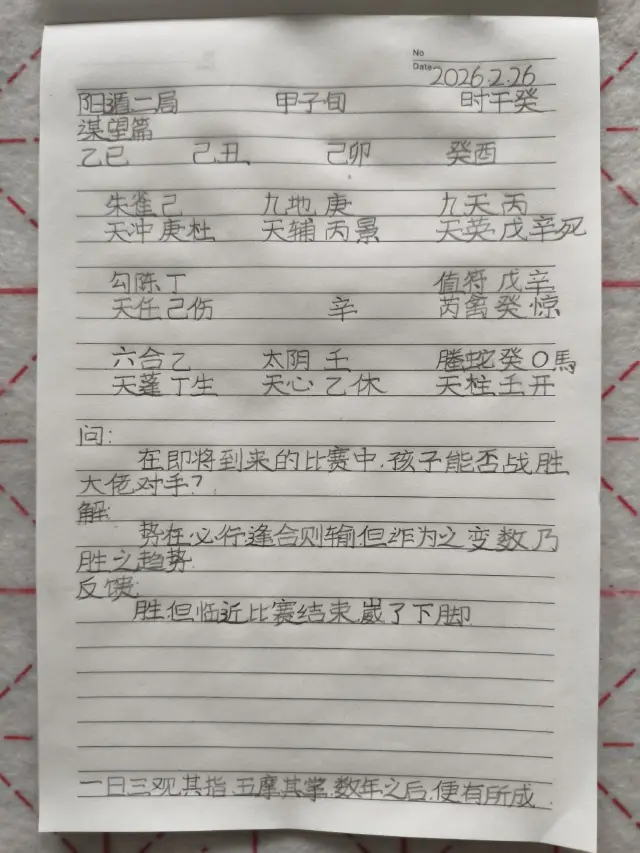 No
Date 2026.2.26
阳遁二局 甲子旬 时干癸
谋望篇
乙巳 己丑 己卯 癸酉
朱雀己 九地庚 九天丙
天冲庚杜 天辅丙景 天英戊辛死
勾陈丁 值符戊辛
天任己伤 辛 芮禽癸惊
六合乙 太阴壬 螣蛇癸〇馬
天蓬丁生 天心乙休 天柱壬开
问:
在即将到来的比赛中.孩子能否战胜
大佬对手?
解:
势在必行.逢合则输.但诈为之变数乃
胜之趋势.
反馈:
胜.但临近比赛结束.崴了下脚
一日三观其指.五摩其掌.数年之后.便有所成.